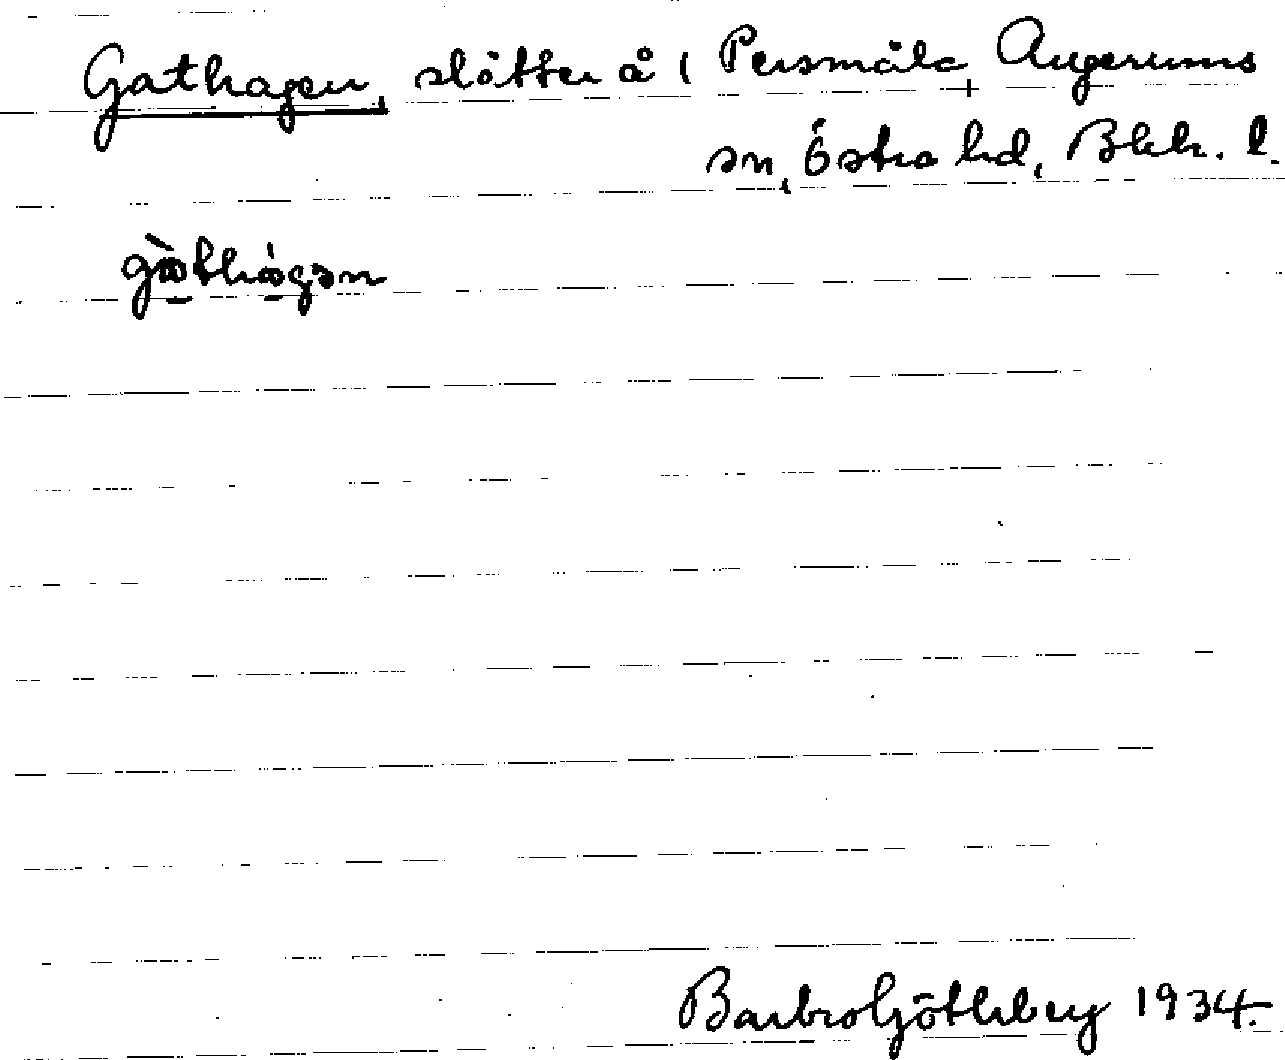 Gathagen, slåtter å i Persmåla, Augerums
sn, Östra hd, Blek. l.
gàthágən
Barbro Götleberg 1934.